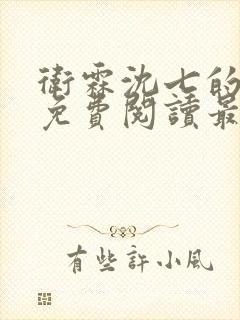 衛霖沈七的
免費閱讀最
有些許小風